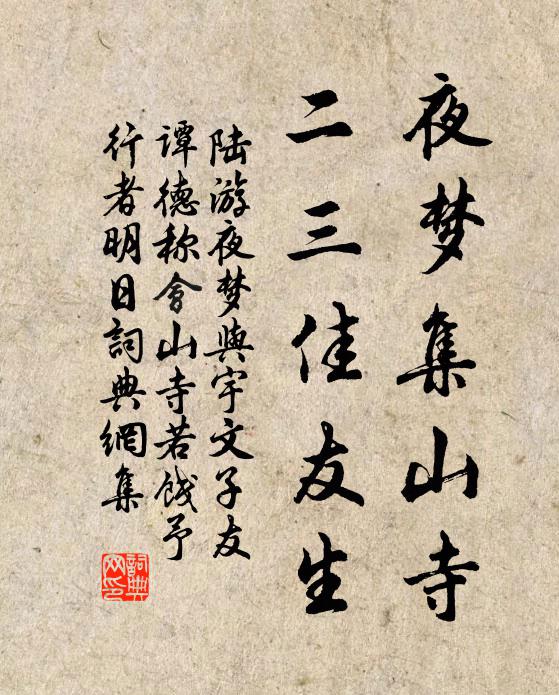 夜梦集山寺
二三佳友生
陆游夜梦與宇文子友
谭德称會山寺若饯予
行者明日詞典網集
詞典
网印